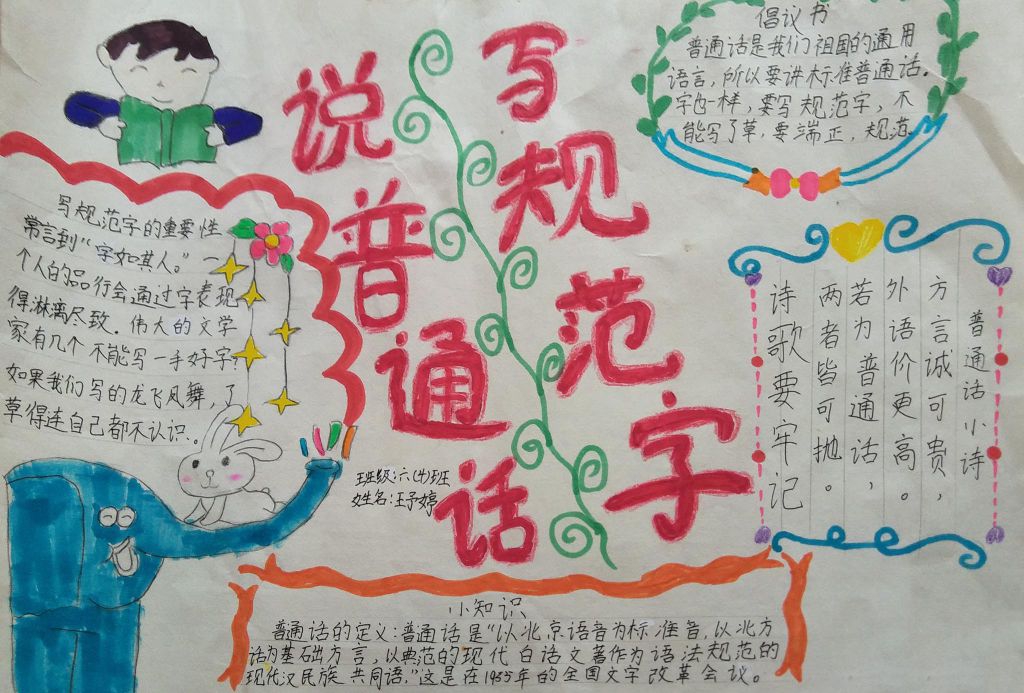 说普通话
写规范字
倡议书
普通话是我们祖国的通用
语言，所以要讲标准普通话。
字也一样，要写规范字，不
能写了草，要端正，规范.
写规范字的重要性
常言到“字如其人。”一
个人的品行会通过字表现
得淋漓尽致．伟大的文学
家有几个不能写一手好字？
如果我们写的龙飞凤舞，了
草得连自己都不认识．。
班级：六(4)班
姓名：王予婷
普通话小诗
方言诚可贵，
外语价更高。
若为普通话，
两者皆可抛。
诗歌要牢记
小知识
普通话的定义：普通话是“以北京语音为标准音，以北方
话为基础方言，以典范的现代白话文著作为语法规范的
现代汉民族共同语，”这是在1955年的全国文字改革会议。